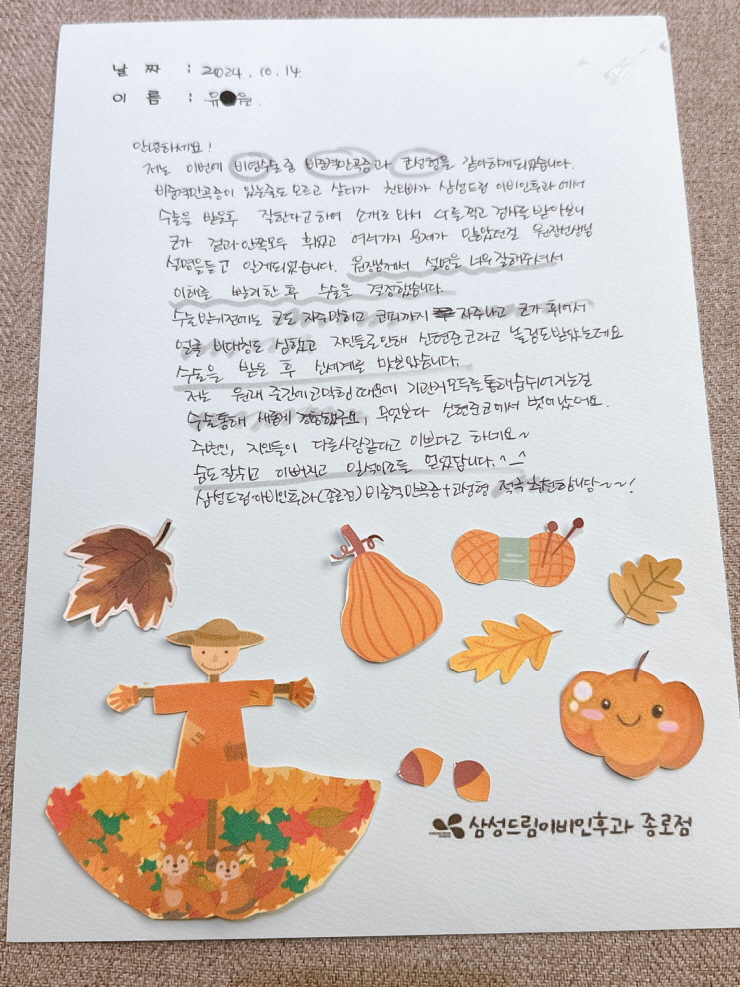 날 짜 : 2024. 10. 14.
이 름 : 유●윤.
안녕하세요!
저는 이번에 비염수술 중 비중격만곡증과 코성형을 같이하게되었습니다.
비중격만곡증이 있는줄도 모르고 살다가 친한언니가 삼성드림 이비인후과에서
수술을 받은후 잘한다고하여 소개로 와서 CT를 찍고 검사를 받아보니
코가 겉과 안쪽모두 휘었고 여러가지 문제가 많았던걸 원장선생님
설명을듣고 알게되었습니다. 원장님께서 설명을 너무 잘해주셔서
이해를 빨리한 후 수술을 결정했습니다.
수술받기전에는 코도 자주막히고 코피까지 자주나고 코가 휘어서
얼굴 비대칭도 심했고 지인들로인해 신현준코라고 놀림도받았는데요
수술을 받은 후 신세계를 맛보았습니다.
저는 원래 중간에 막힘때문에 숨쉬어지는걸
수술통해 새롭게 경험했구요, 무엇보다 신현준코에서 벗어났어요.
주변인, 지인들이 다른사람같다고 이쁘다고 하네요~
숨도 잘쉬고 이뻐지고 일석이조를 얻었답니다. ^_^
삼성드림이비인후과(종로점) 비중격만곡증+코성형 적극 추천합니당~~!
삼성드림이비인후과 종로점